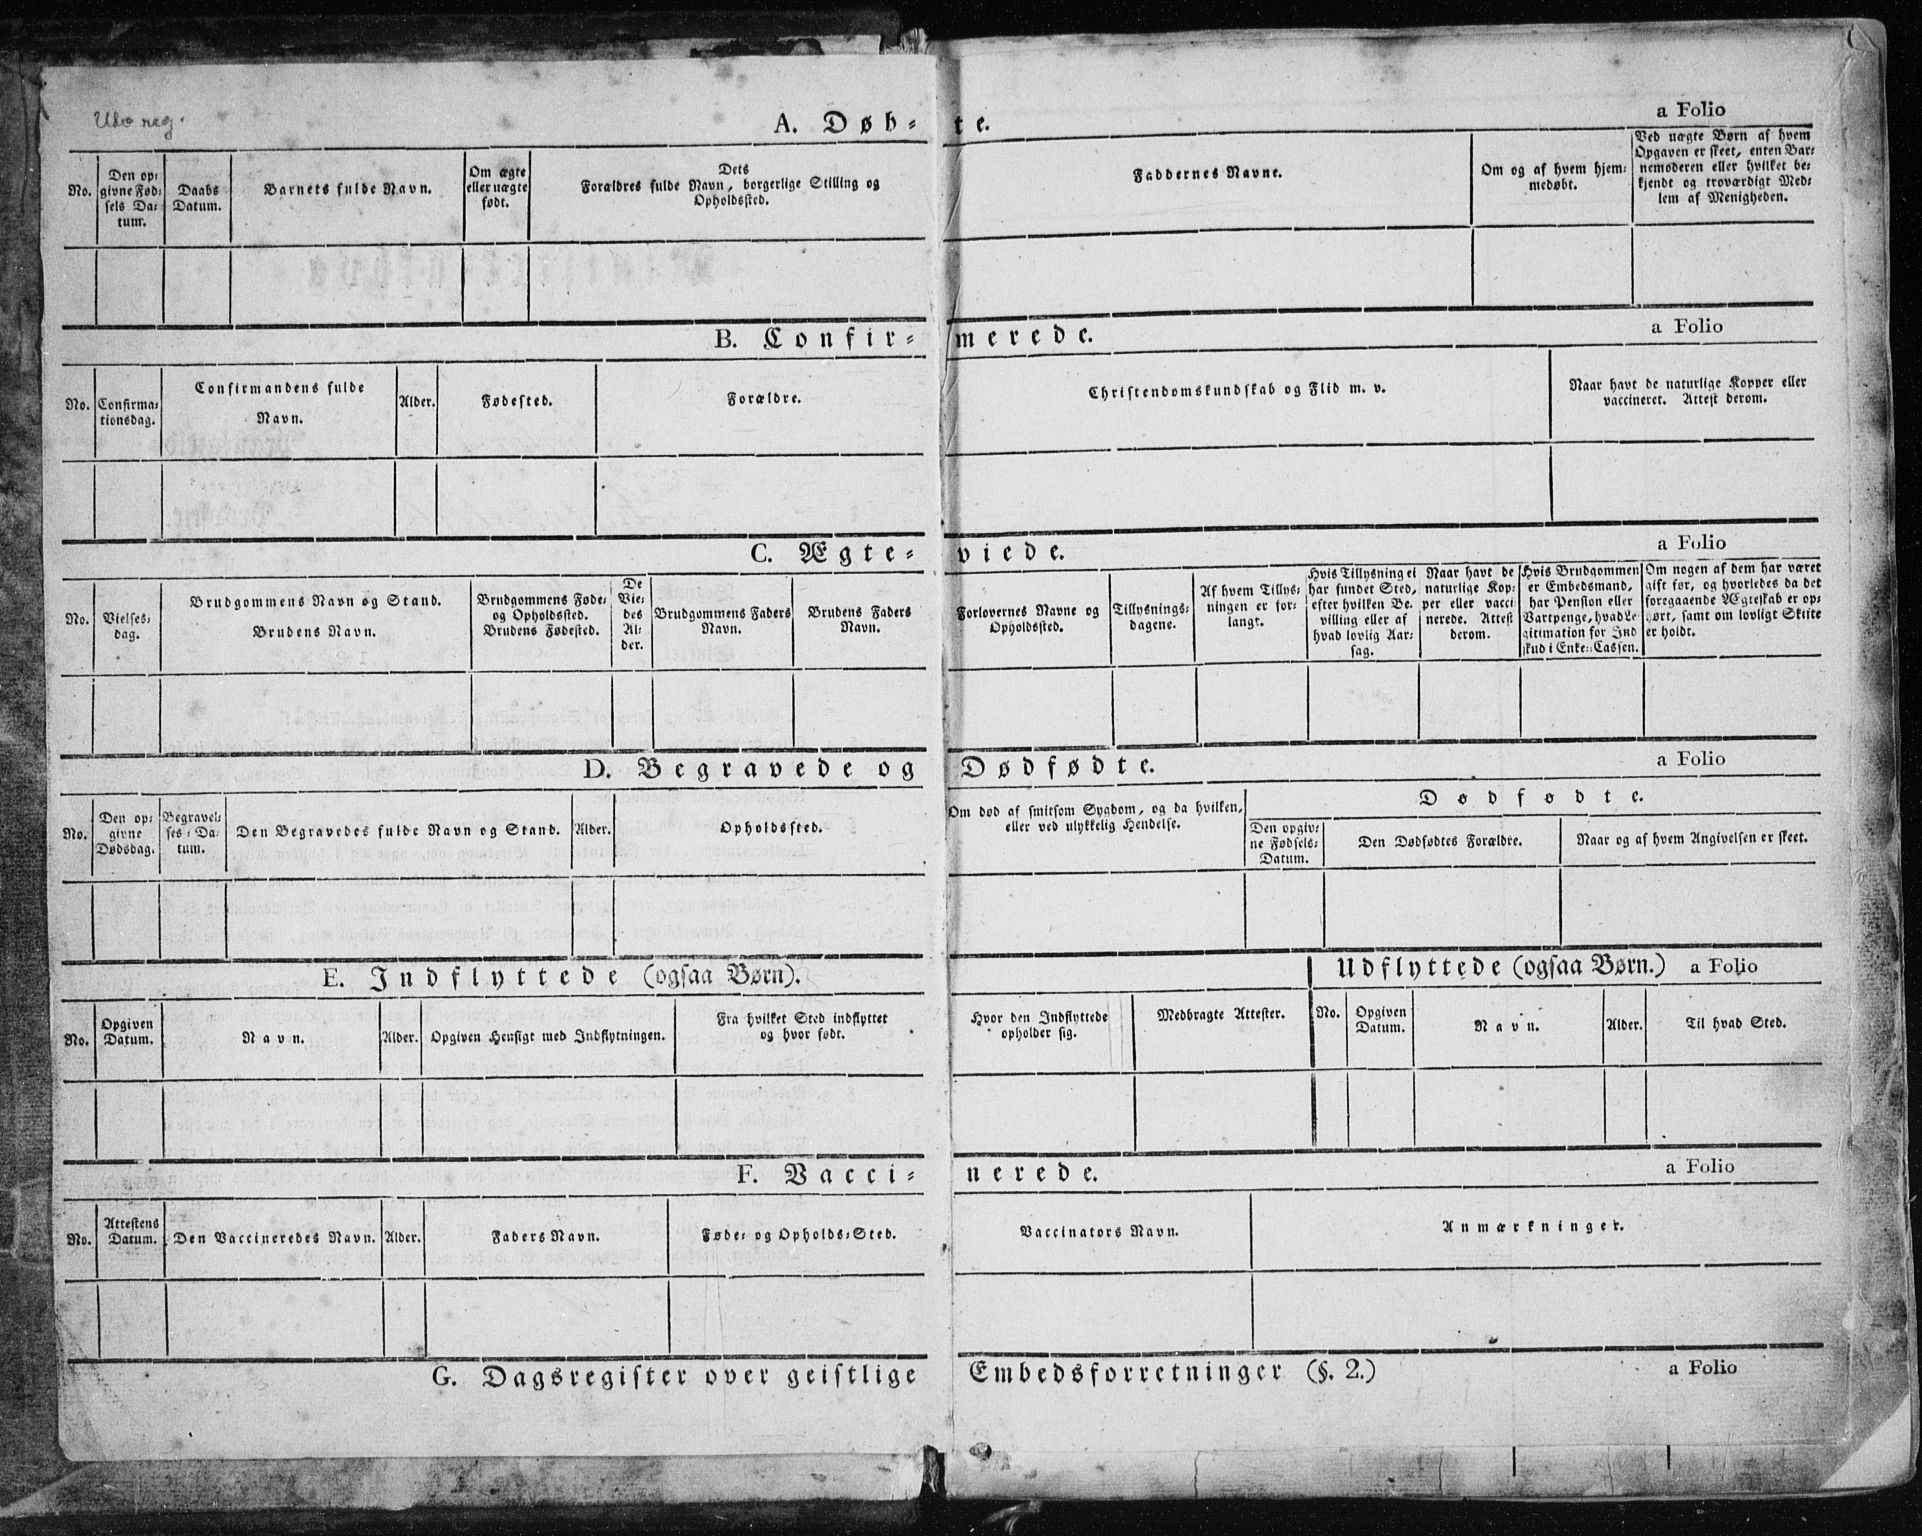 Uden reg.
A. Døb- te. a Folio
No.
Den op-
givne Fød-
sels Da-
tum.
Daabs
Datum.
Barnets fulde Navn.
Om ægte
eller uægte
født.
Dets
Forældres fulde Navn, borgerlige Stilling og
Opholdssted.
Faddernes Navne.
Om og af hvem hjem-
medøbt.
Ved uægte Børn af hvem
Opgaven er skeet, enten Bar-
nemoderen eller hvilket be-
kjendt og troværdigt Med-
lem af Menigheden.
B. Confir- merede. a Folio
No.
Confirma-
tionsdag.
Confirmandens fulde
Navn.
Alder.
Fødested.
Forældre.
Christendomskundskab og Flid m. v.
Naar havt de naturlige Kopper eller
vaccineret. Attest derom.
C. Ægte- viede. a Folio
No.
Vielses-
dag.
Brudgommens Navn og Stand.
Brudens Navn.
Brudgommens Føde-
og Opholdssted.
Brudens Fødested.
De
Vie-
des
Al-
der.
Brudgommens Faders
Navn.
Brudens Faders
Navn.
Forlovernes Navne og
Opholdssted.
Tillysnings-
dagene.
Af hvem Tillys-
ningen er for-
langt.
Hvis Tillysning ei
har fundet Sted,
efter hvilken Be-
villing eller af
hvad lovlig Aar-
sag.
Naar havt de
naturlige Kop-
per eller vacci-
nerede. Attest
derom.
Hvis Brudgommen
er Embedsmand,
har Pension eller
Vartpenge, hvad Le-
gitimation for Ind
skud i Enke-Cassen.
Om nogen af dem har været
gift før, og hvorledes da det
foregaaende Ægteskab er op-
hørt, samt om lovligt Skifte
er holdt.
D. Begravede og Dødfødte. a Folio
No.
Den op-
givne
Dødsdag.
Begravel-
ses-Da-
tum.
Den Begravedes fulde Navn og Stand.
Alder.
Opholdssted.
Om død af smitsom Sygdom, og da hvilken,
eller ved ulykkelig Hendelse.
Dødfødte.
Den opgiv-
ne Fødsels-
Datum.
Den Dødfødtes Forældre.
Naar og af hvem Angivelsen er skeet.
E. Indflyttede (ogsaa Børn). Udflyttede (ogsaa Børn.) a Folio
No.
Opgiven
Datum.
Navn.
Alder.
Opgiven Hensigt med Indflytningen.
Fra hvilket Sted indflyttet
og hvor født.
Hvor den Indflyttede
opholder sig.
Medbragte Attester.
No.
Opgiven
Datum.
Navn.
Alder.
Til hvad Sted.
F. Vacci- nerede. a Folio
No.
Attestens
Datum.
Den Vaccineredes Navn.
Alder.
Faders Navn.
Føde- og Opholds-Sted.
Vaccinators Navn.
Anmærkninger.
G. Dagsregister over geistlige Embedsforretninger (§. 2.) a Folio